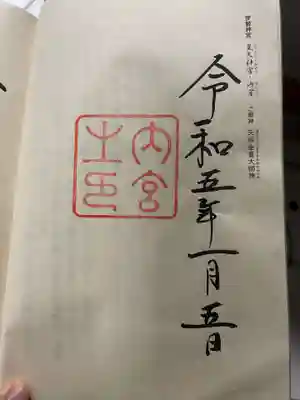 伊勢神宮 皇大神宮 内宮 ご祭神 天照坐皇大御神
令和五年一月五日
内宮
之印